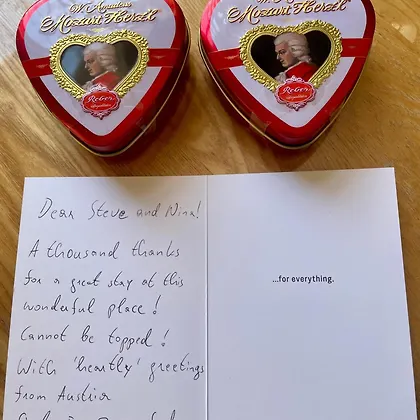 W. Amadeus
Mozart Herzl
Reber
W. Amadeus
Mozart Herzl
Reber
Dear Steve and Nina!
A thousand thanks
for a great stay at this
wonderful place!
Cannot be topped!
With 'heartly' greetings
from Austria
...for everything.